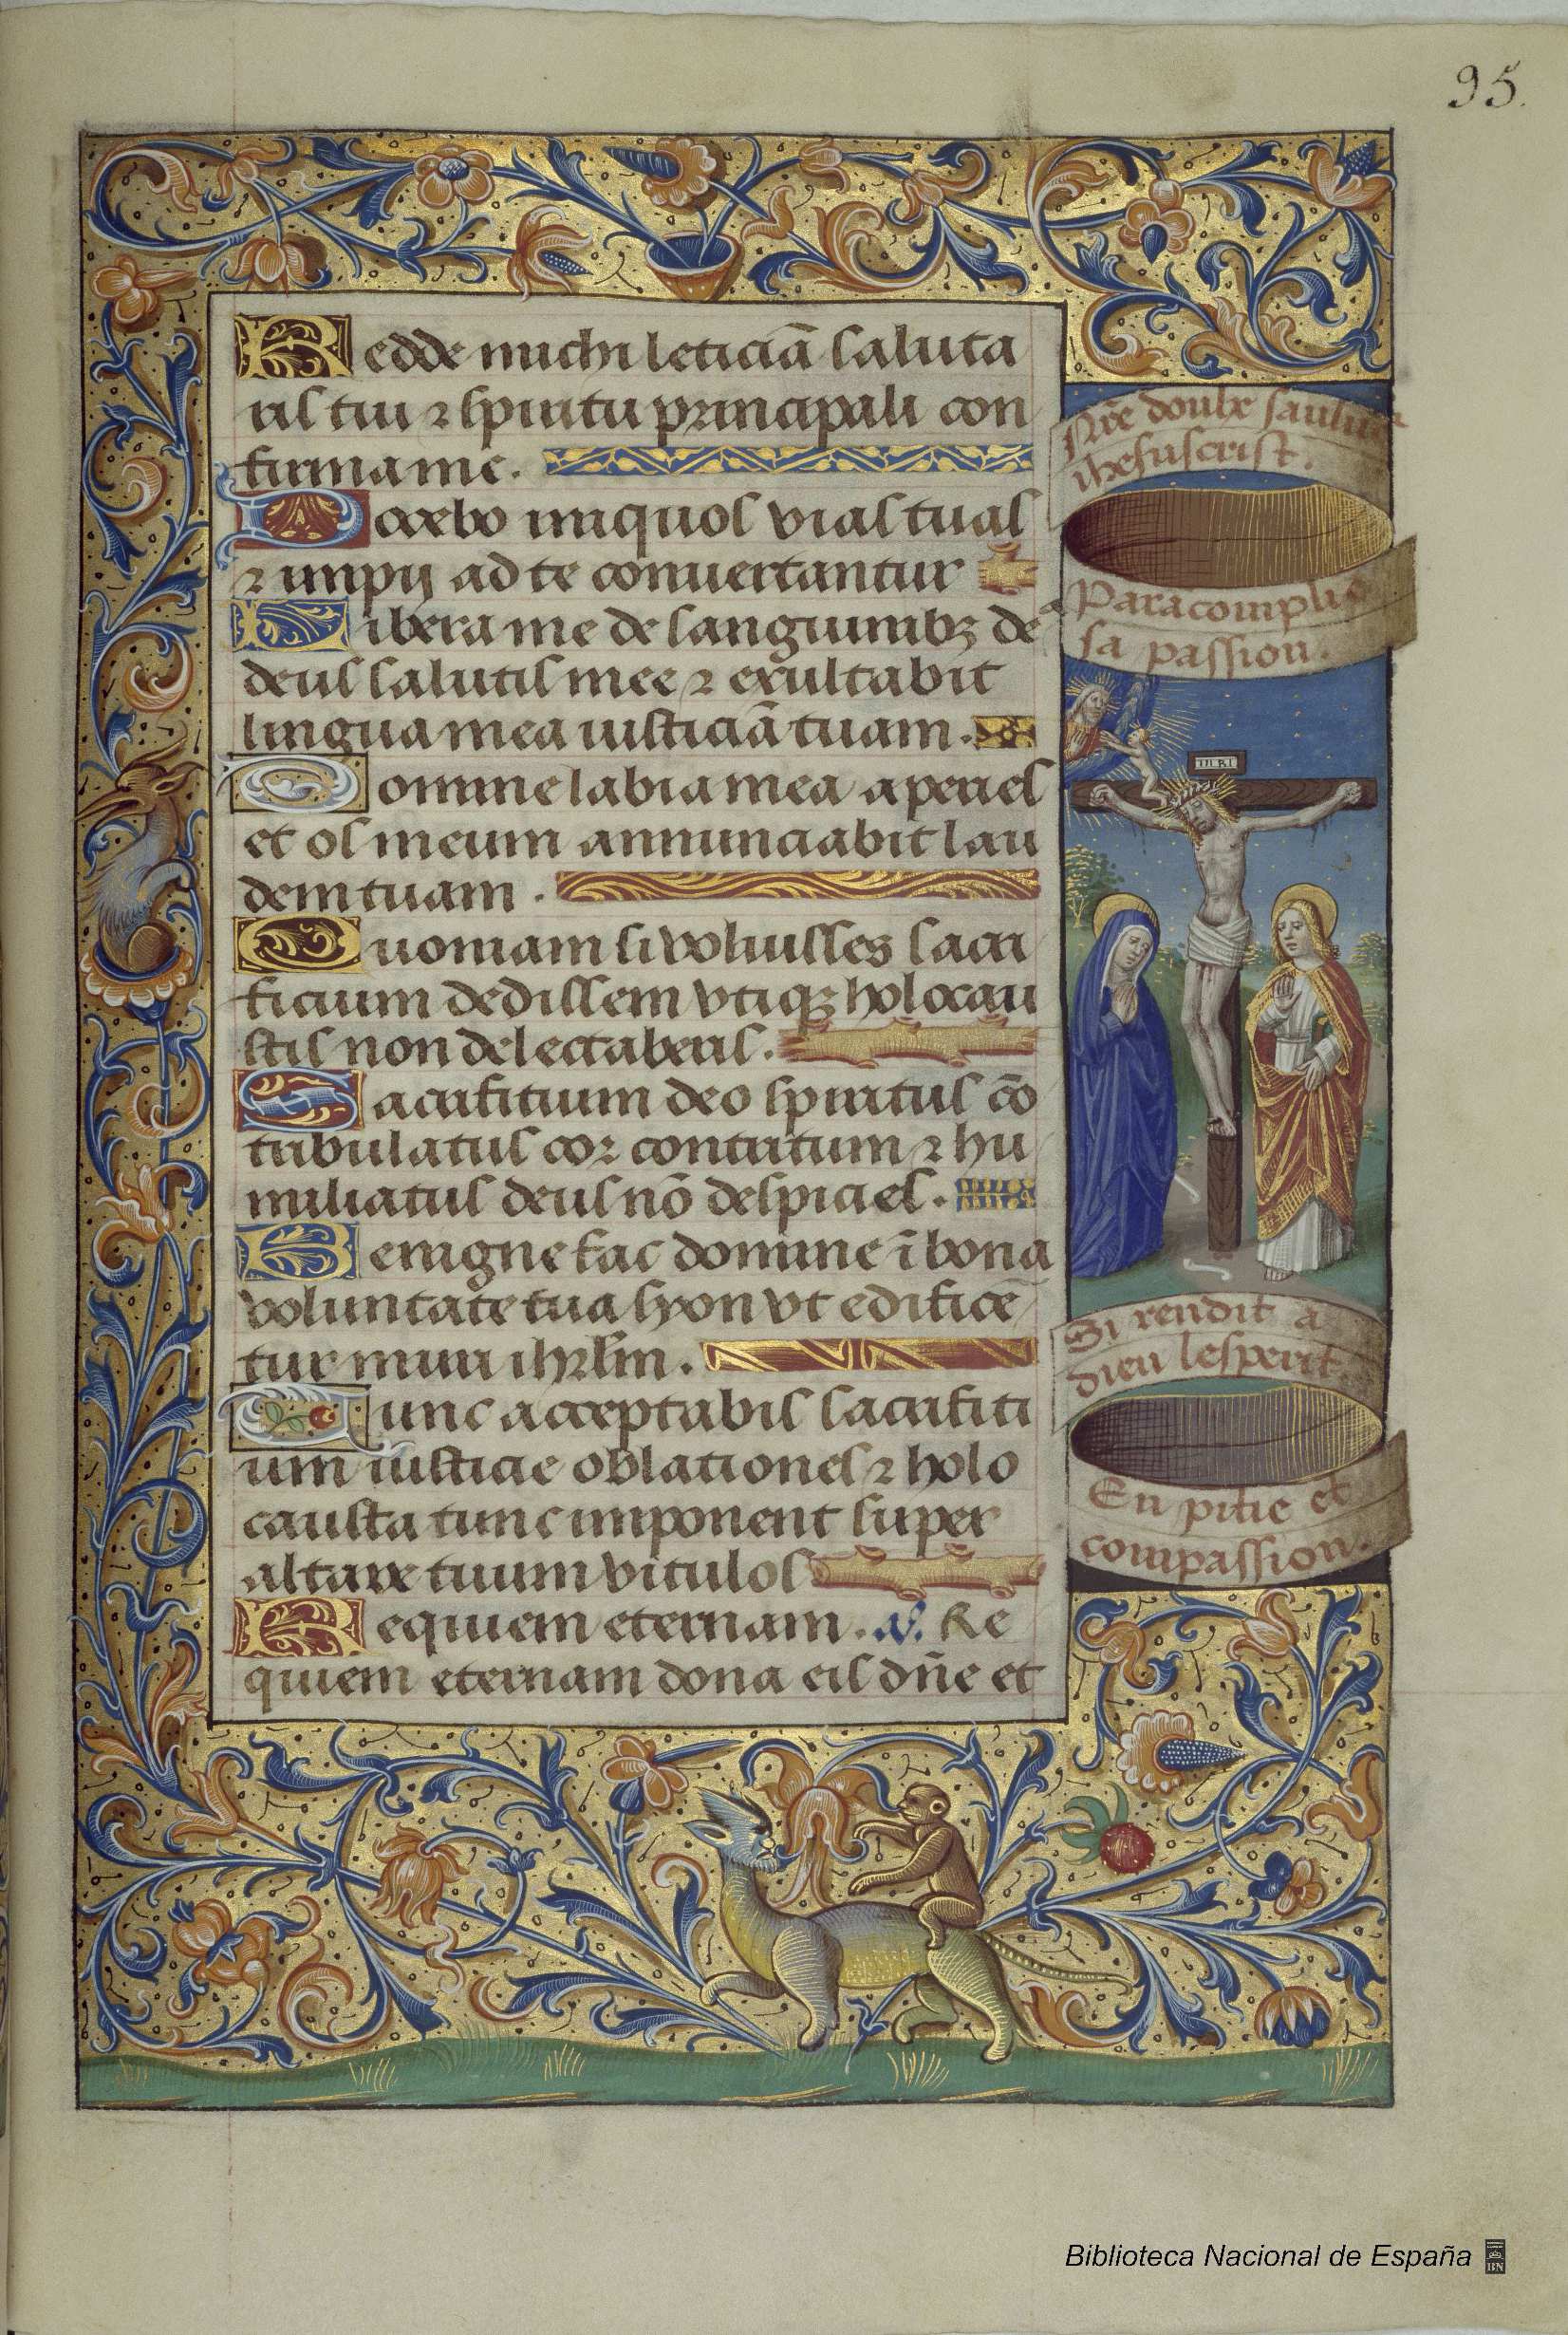 95.
Redde michi leticiã saluta
ris tui ⁊ spiritu principali con
firma me.
Docebo iniquos vias tuas
⁊ impij ad te conuertantur
Libera me de sanguinibꝫ deꝰ
deus salutis mee ⁊ exultabit
lingua mea iusticiã tuam.
Domine labia mea aperies
et os meum annunciabit lau
dem tuam.
Quoniam si voluisses sacri
ficium dedissem vtiqꝫ holocau
stis non delectaberis.
Sacrifitium deo spiritus cõ
tribulatus cor contritum ⁊ hu
miliatus deus nõ despicies.
Benigne fac domine ĩ bona
voluntate tua syon vt edificẽ
tur muri ihrl̃m.
Tunc acceptabis sacrifiti
um iusticie oblationes ⁊ holo
causta tunc imponent super
altare tuum vitulos
Requiem eternam. v. Re
quiem eternam dona eis dñe et
Nr̃e doulx
ihesuscrist.
Para complir
sa passion.
INRI
Si rendit a
dieu lesperit
En pitie et
compassion.
Biblioteca Nacional de España
BN